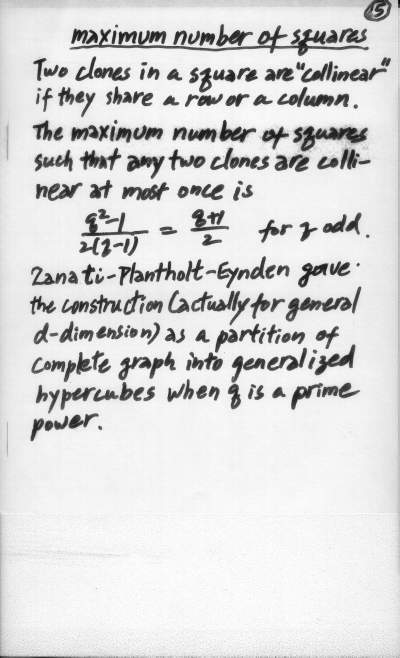 15
maximum number of squares
Two clones in a square are "collinear"
if they share a row or a column.
The maximum number of squares
such that any two clones are colli-
near at most once is
q²-1 / 2(q-1) = q+1 / 2 for q odd.
Zanati-Plantholt-Eynden gave
the construction (actually for general
d-dimension) as a partition of
complete graph into generalized
hypercubes when q is a prime
power.